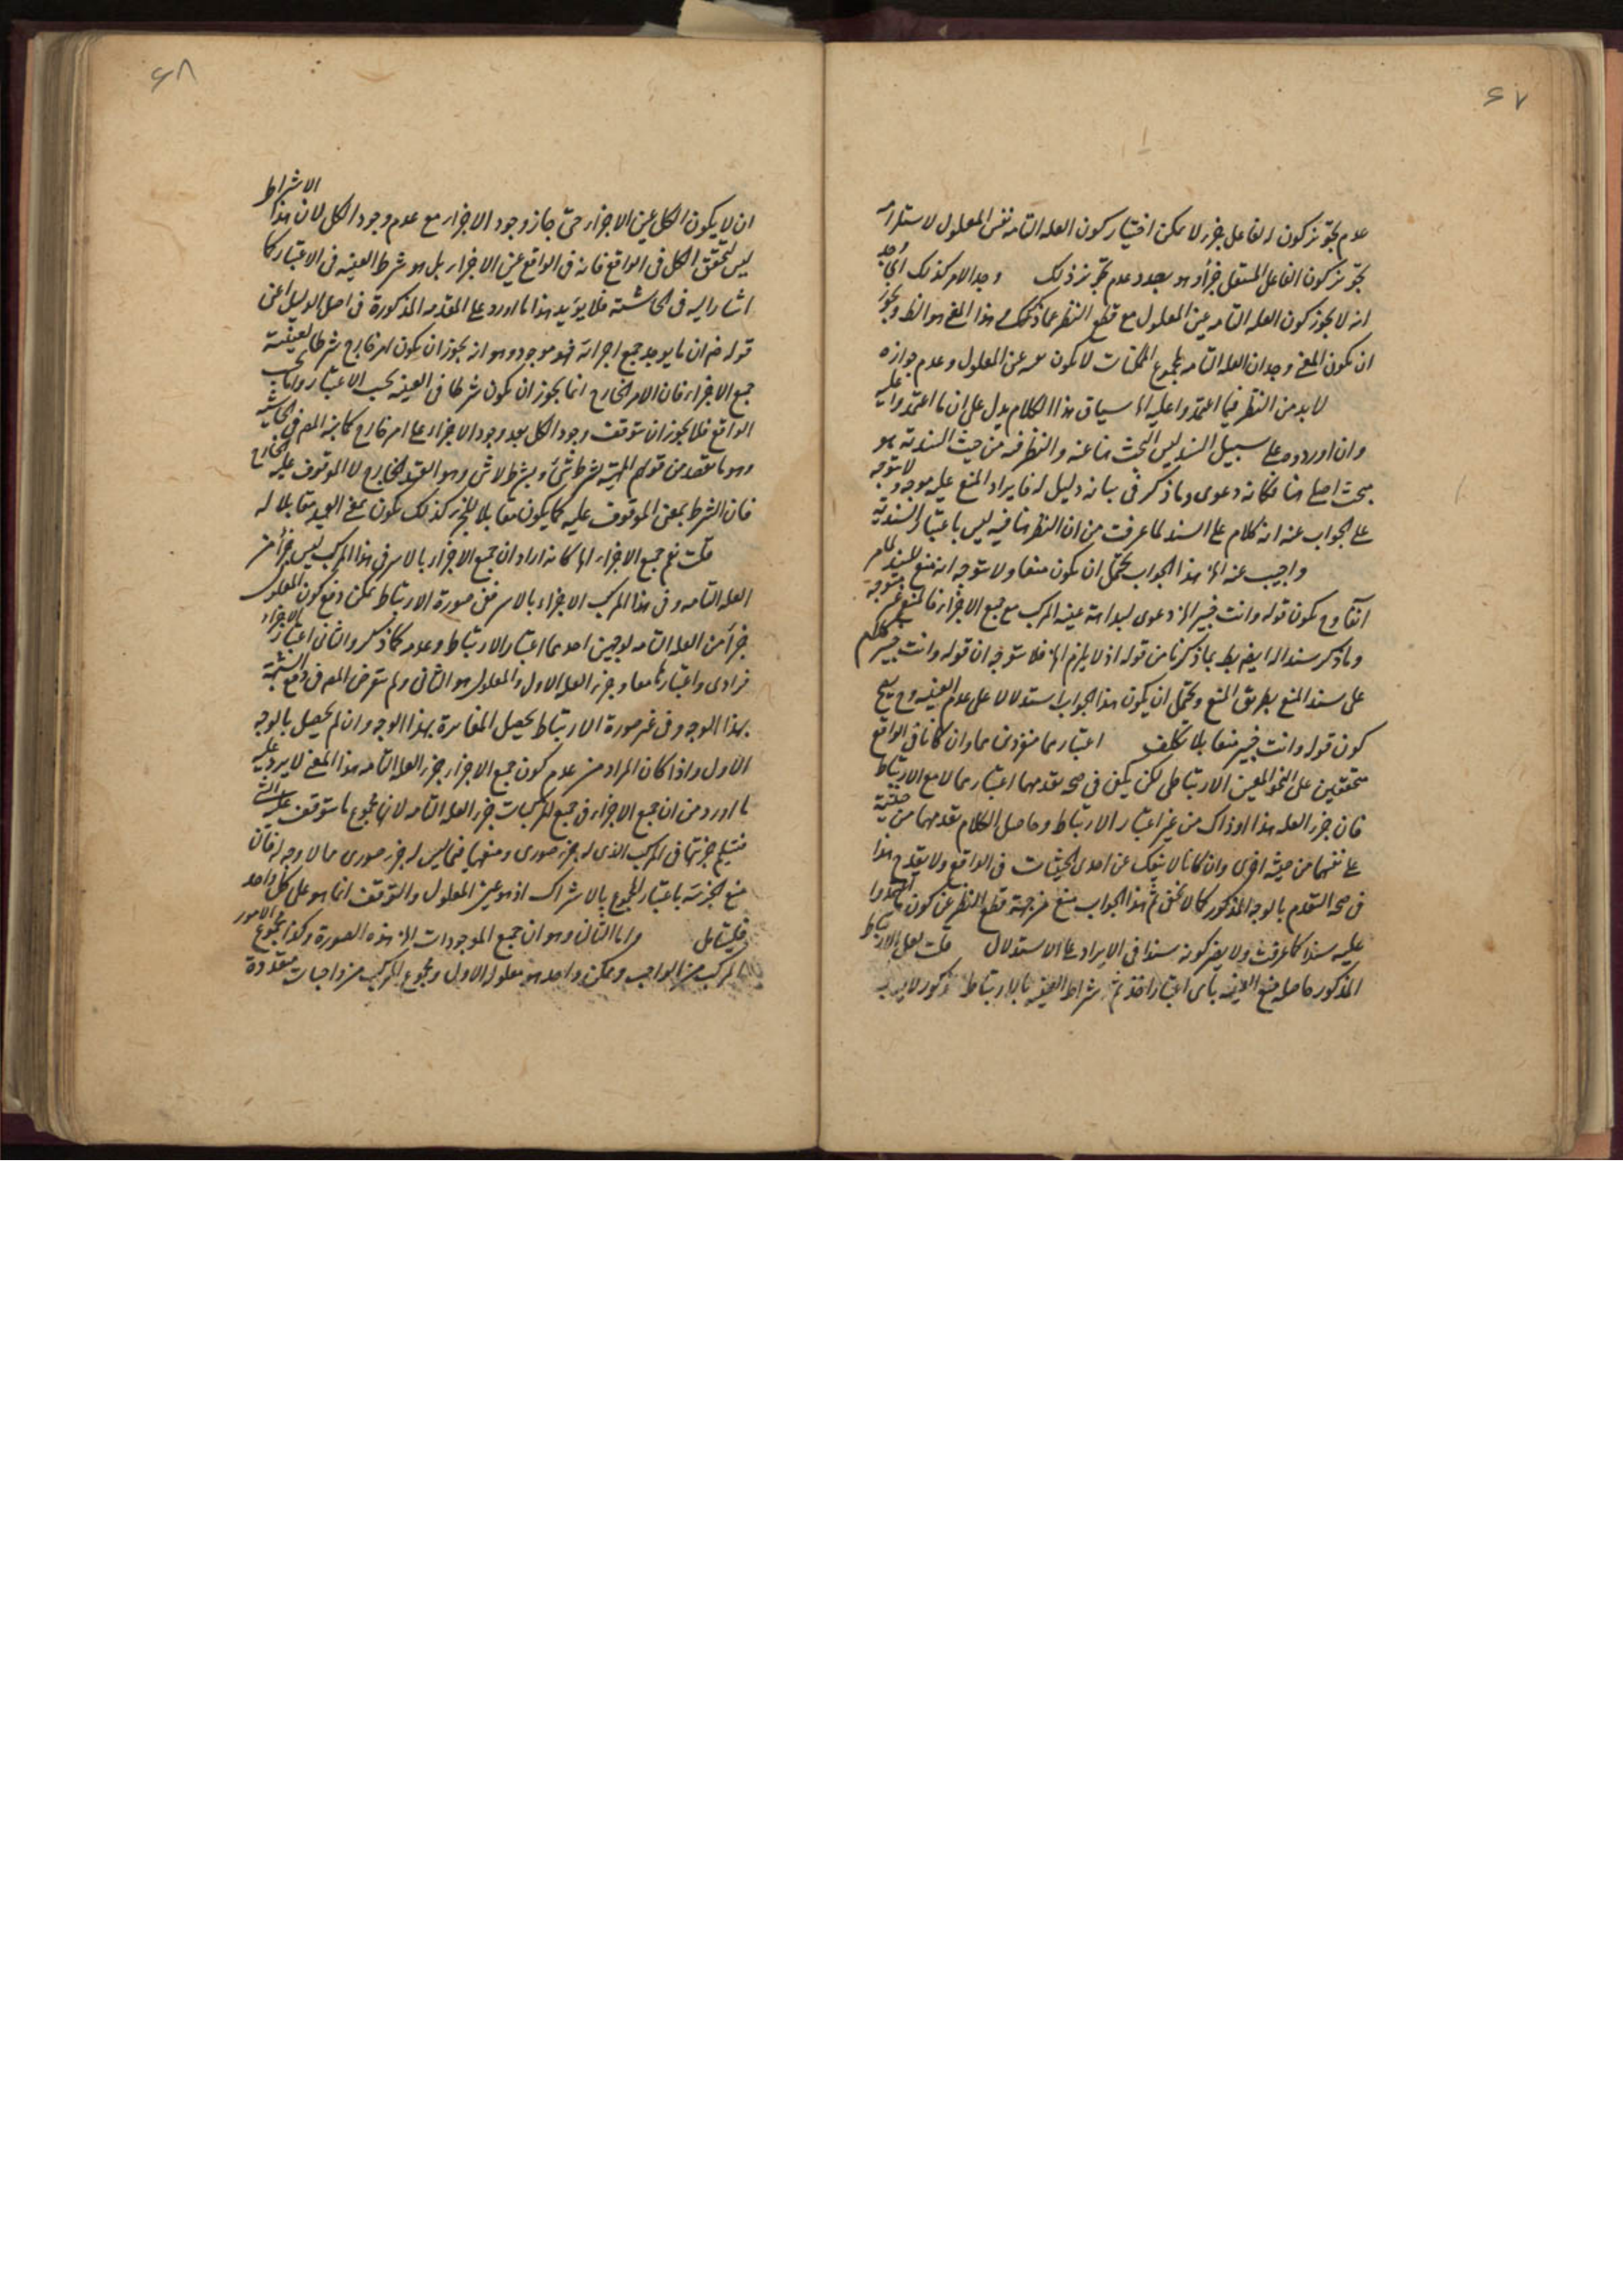 ٦٧
عدم تجويز كون الفاعل جزء لا يمكن اختيار كون العله التامه نفس المعلول لاستلزامه
تجويز كون الفاعل المستقل جزأ وهو بصدد عدم تجويز ذلك وجد الامر كذلك اى وجد
انه لا يجوز كون العله التامه عين المعلول مع قطع النظر عما ذكر هذا المعنى هو الظ ويجوز
ان يكون المعنى وجد ان العله التامه لمجموع الممكنات لا يكون عين المعلول وعدم جوازه
لا بد من النظر فيما اعتمدوا عليه الخ سياق هذا الكلام يدل على ان ما اعتمدوا عليه
وان اوردوه على سبيل السند ليس البحث هنا عنه والنظر فيه من حيث السنديه بل هو
مبحث اصلى هنا فكانه دعوى وما ذكر فى بيانه دليل له فايراد المنع عليه موجه ولا يتوجه
على الجواب عنه انه كلام على السند لما عرفت من ان النظر هنا فيه ليس باعتبار السنديه
واجيب عنه الخ هذا الجواب يحتمل ان يكون منعا ولا يتوجه انه منع للسند لما مر
آنفا وح يكون قوله وانت خبير الخ دعوى لبداهة عينية المركب مع جميع الاجزاء فالمنع غير متوجه
وما ذكر سندا له ايضا يبطل بما ذكرنا من قوله اذ لا يلزم الخ فلا يتوجه ان قوله وانت خبير كلام
على سند المنع بطريق المنع ويحتمل ان يكون هذا الجواب استدلالا على عدم العينيه وح يصح
كون قوله وانت خبير منعا بلا تكلف اعتبارهما منفردين هما وان كانا فى الواقع
متحققين على النحو المعين الارتباطى لكن يكفى فى صحه تقدمهما اعتبارهما لا مع الارتباط
فان جزء العله هذا او ذاك من غير اعتبار الارتباط وحاصل الكلام تقدمهما من حيثية
على نفسهما من حيثية اخرى وان كانا لا ينفك عن احدى الحيثيات فى الواقع ولا يقدح هذا
فى صحه التقدم بالوجه المذكور كما لا يخفى ثم هذا الجواب منع من جهة قطع النظر عن كون ما اعتمدوا
عليه سندا كما عرفت ولا يضر كونه سندا فى الايراد على الاستدلال قلت لعل الارتباط
المذكور حاصله منع العينيه باى اعتبار اخذ ثم اشتراط العينيه بالارتباط المذكور لا يوجب
٦٨
ان لا يكون الكل عين الاجزاء حتى جاز وجود الاجزاء مع عدم وجود الكل لان هذا الاشتراط
ليس لتحقق الكل فى الواقع فانه فى الواقع عين الاجزاء بل هو شرط العينيه فى الاعتبار كما
اشار اليه فى الحاشية فلا يؤيد هذا ما اورد على المقدمه المذكورة فى اصل الدليل اعنى
قوله ضم ان ما يوجد جميع اجزائه فهو موجود وهو انه يجوز ان يكون امر خارج شرطا لعينية
جميع الاجزاء فان الامر الخارج انما يجوز ان يكون شرطا فى العينيه بحسب الاعتبار واما بحسب
الواقع فلا يجوز ان يتوقف وجود الكل بعد وجود الاجزاء على امر خارج كما بينه المص فى الحاشيه
وهو ما يقصد من قولهم المهية بشرط شئ او بشرط لا شئ وهو القيد الخارج لا الموقوف عليه الخارج
فان الشرط بمعنى الموقوف عليه كما يكون مقابلا للجزء كذلك يكون بمعنى القيد مقابلا له
قلت نعم جميع الاجزاء الخ كانه اراد ان جميع الاجزاء بالاسر فى هذا المركب ليس جزأ من
العله التامه وفى هذا المركب الاجزاء بالاسر ففى صورة الارتباط يمكن دفع كون المعلول
جزأ من العله التامه لوجهين احدهما اعتبار الارتباط وعدمه كما ذكر والثانى اعتبار الاجزاء
فرادى واعتبارها معا وجزء العله الاول والمعلول هو الثانى ولم يتعرض المص فى دفع الشبهة
بهذا الوجه وفى غير صورة الارتباط يحصل المغايرة بهذا الوجه وان لم يحصل بالوجه
الاول واذا كان المراد من عدم كون جميع الاجزاء جزء العله التامه هذا المعنى لا يرد عليه
ما اورد من ان جميع الاجزاء فى جميع المركبات جزء العله التامه لانها مجموع ما يتوقف عليه الشئ
فتسليم جزئيتها فى المركب الذى له جزء صورى ومنعها فيما ليس له جزء صورى مما لا وجه له فان
منع الجزئيه باعتبار المجموع بالاشتراك اذ هو عين المعلول والتوقف انما هو على كل واحد
فليتامل واما الثانى وهو ان جميع الموجودات الخ هذه الصورة وكذا مجموع الامور
المركب من الواجب وممكن واحد هو معلوله الاول ومجموع المركب من واجبات متعددة